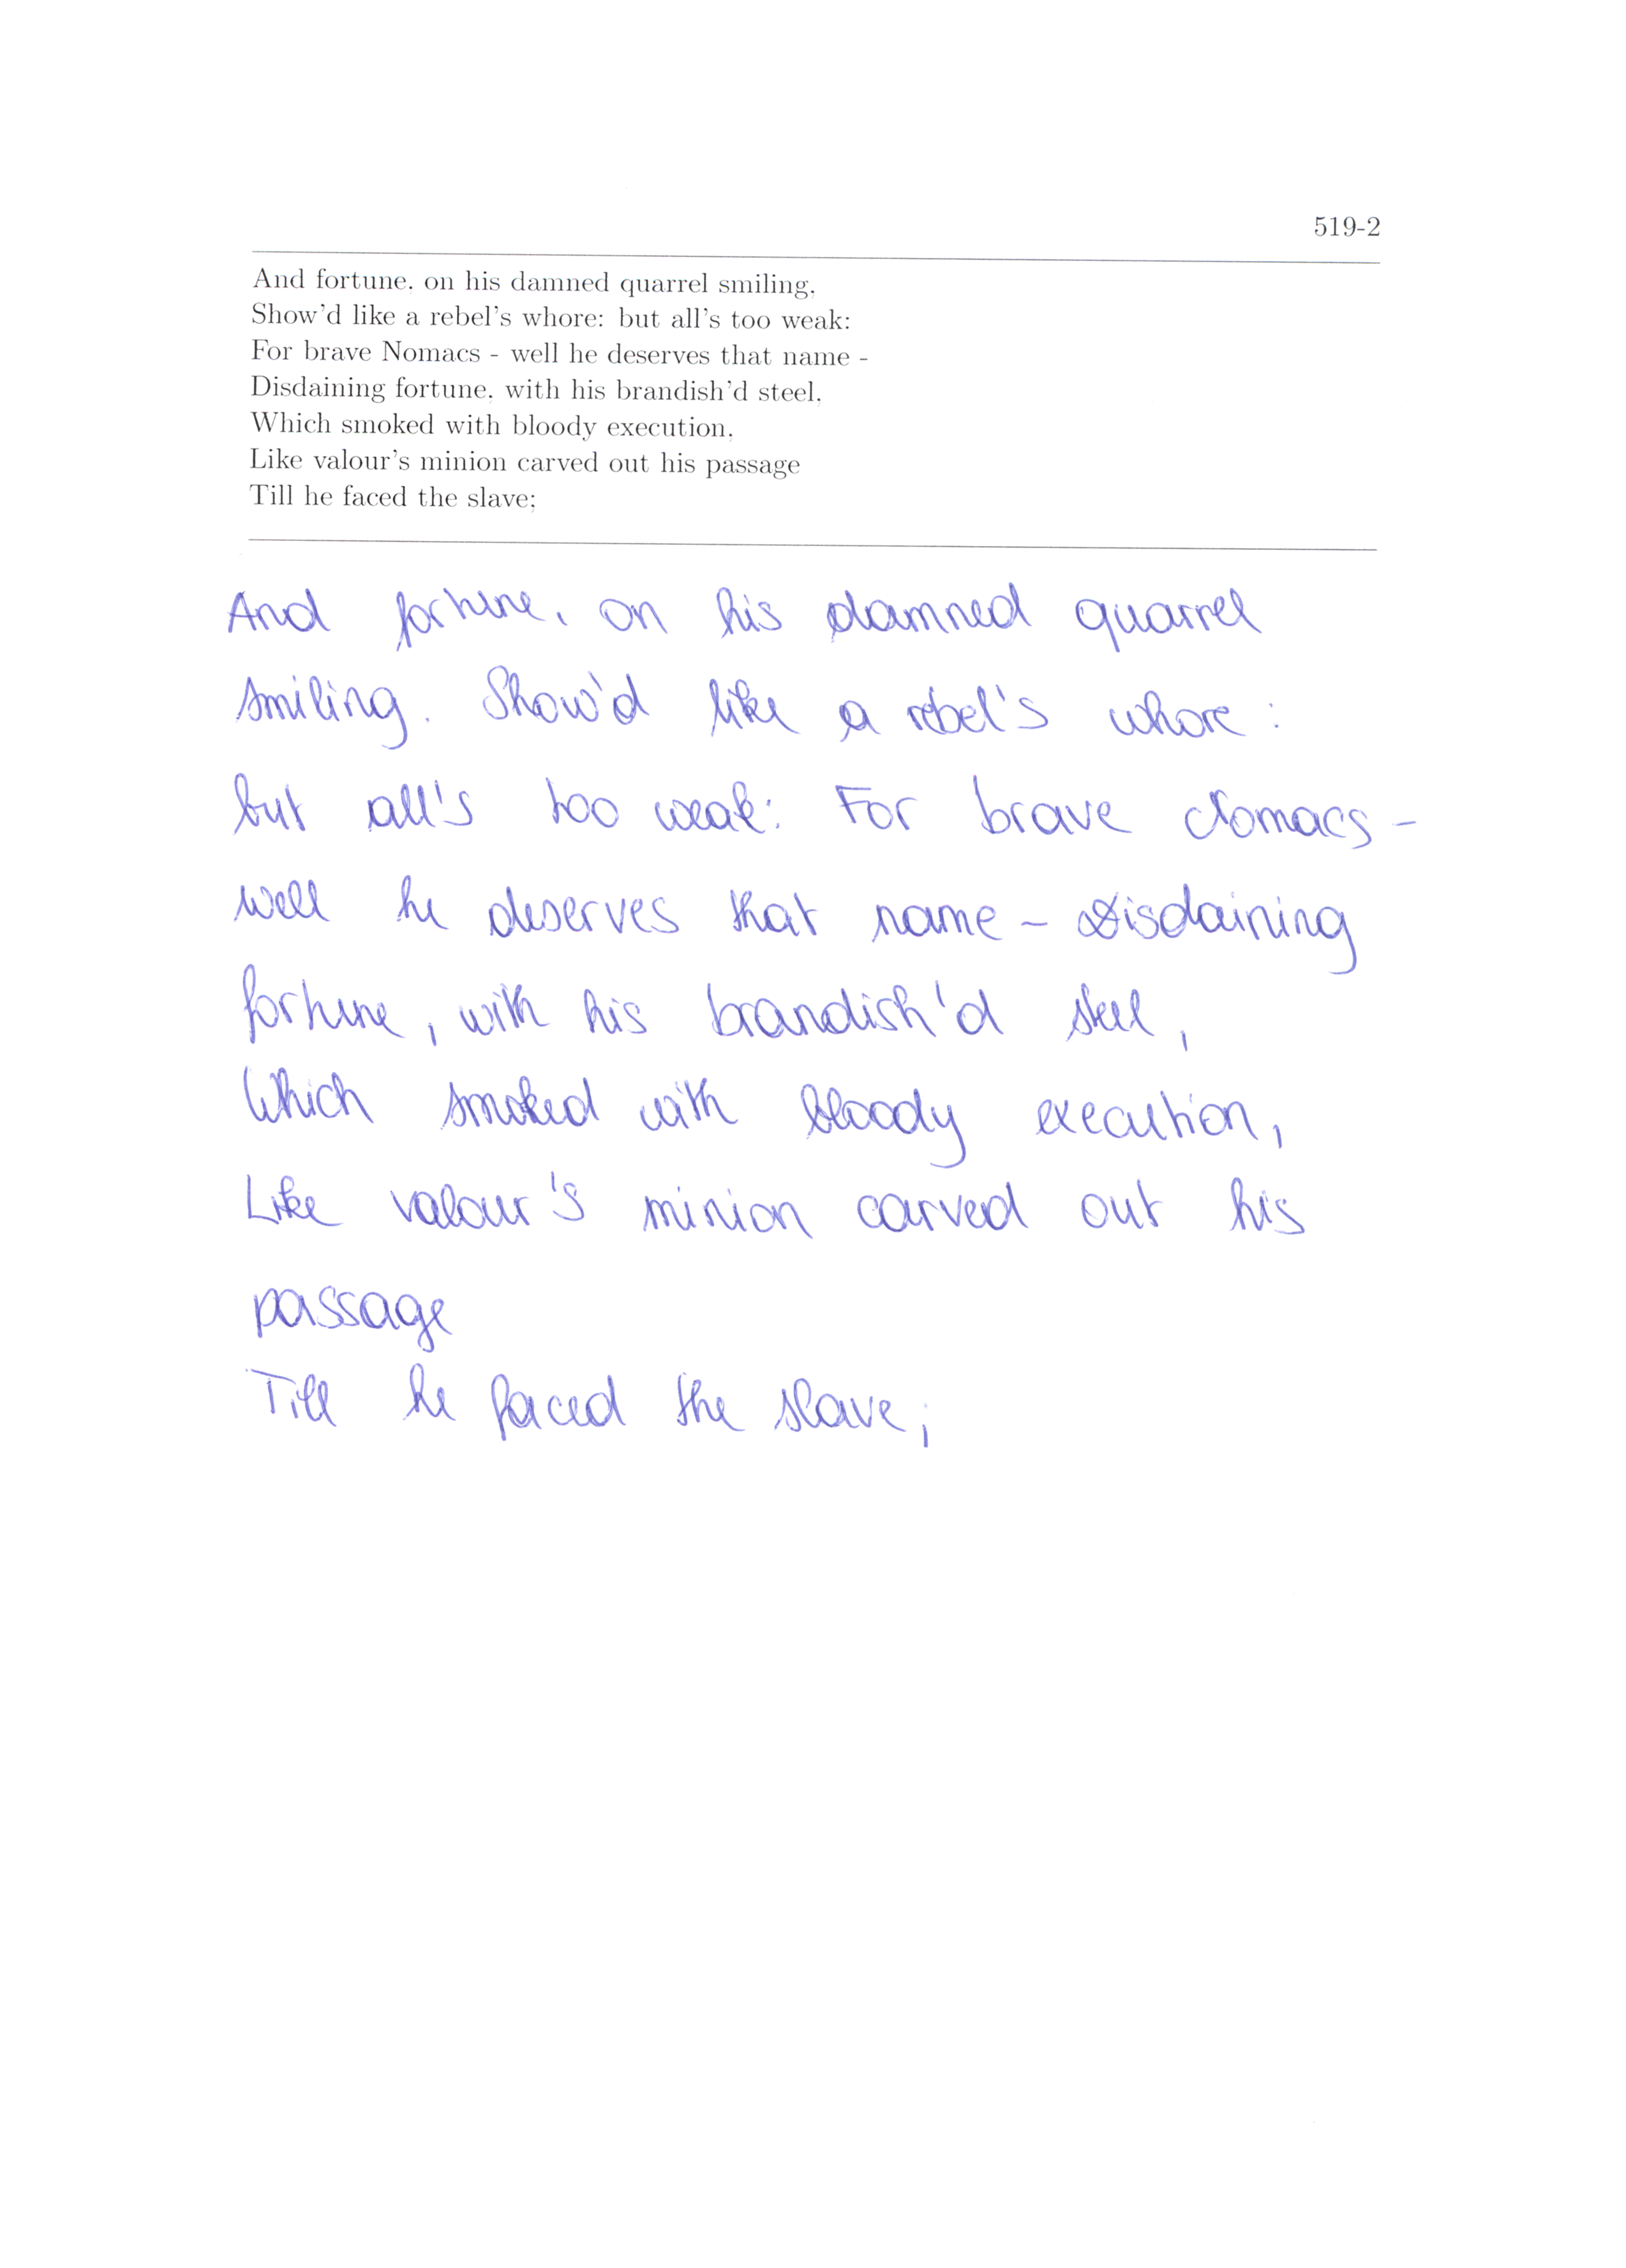 519-2
And fortune. on his damned quarrel smiling.
Show'd like a rebel's whore: but all's too weak:
For brave Nomacs - well he deserves that name -
Disdaining fortune. with his brandish'd steel.
Which smoked with bloody execution.
Like valour's minion carved out his passage
Till he faced the slave;
And fortune, on his damned quarrel
smiling. Show'd like a rebel's whore:
but all's too weak: For brave Nomacs -
well he deserves that name - Disdaining
fortune, with his brandish'd steel,
Which smoked with bloody execution,
Like valour's minion carved out his
passage
Till he faced the slave;